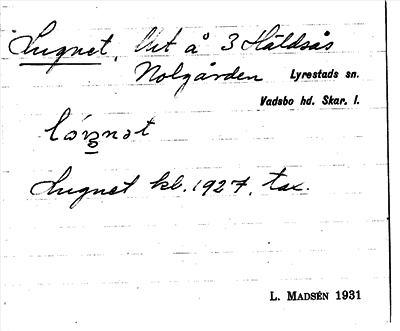 Lugnet, lht å 3 Håldsås
Nolgården Lyrestads sn.
Vadsbo hd. Skar. l.
Lugnet kl. 1927. tax.
L. MADSÉN 1931